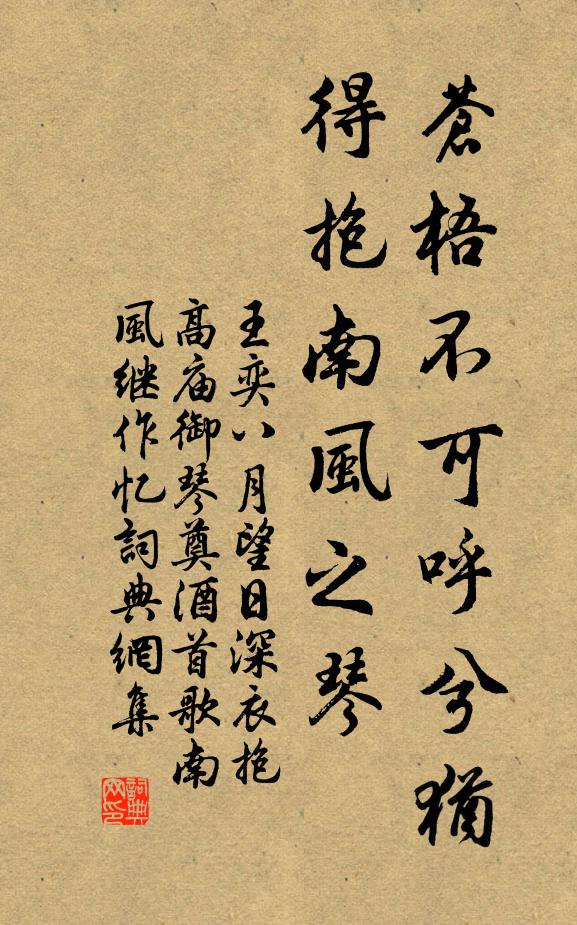 蒼梧不可呼兮猶
得抱南風之琴
王奕八月望日深衣抱
高庙御琴奠酒首歌南
風继作忆詞典網集
詞典网印